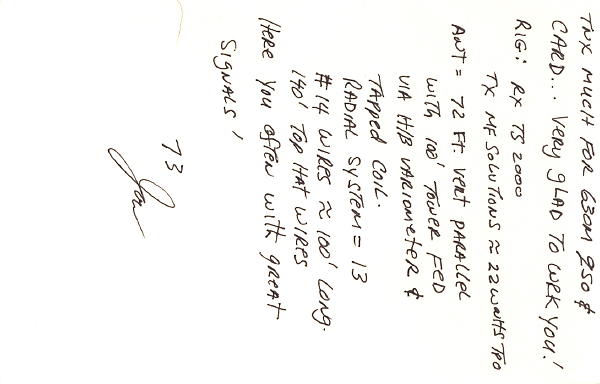 TNX MUCH FOR 630M QSO &
CARD... VERY GLAD TO WRK YOU!
RIG: RX TS 2000
TX MF SOLUTIONS ≈ 22 WATTS TPO
ANT = 72 FT. VERT PARALLEL
WITH 100' TOWER FED
VIA H/B VARIOMETER &
TAPPED COIL.
RADIAL SYSTEM = 13
#14 WIRES ≈ 100' LONG.
140' TOP HAT WIRES
HERE YOU OFTEN WITH GREAT
SIGNALS'
73